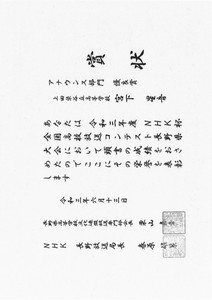 賞状
アナウンス部門 優良賞
上田染谷丘高等学校 宮下 星音
あなたは令和三年度NHK杯
全国高校放送コンテスト長野県
大会において頭書の成績をおさ
めたのでここにその栄誉を表彰
します
令和三年六月十三日
長野県高等学校文化連盟放送専門部会長 栗山
NHK 長野放送局長 春原